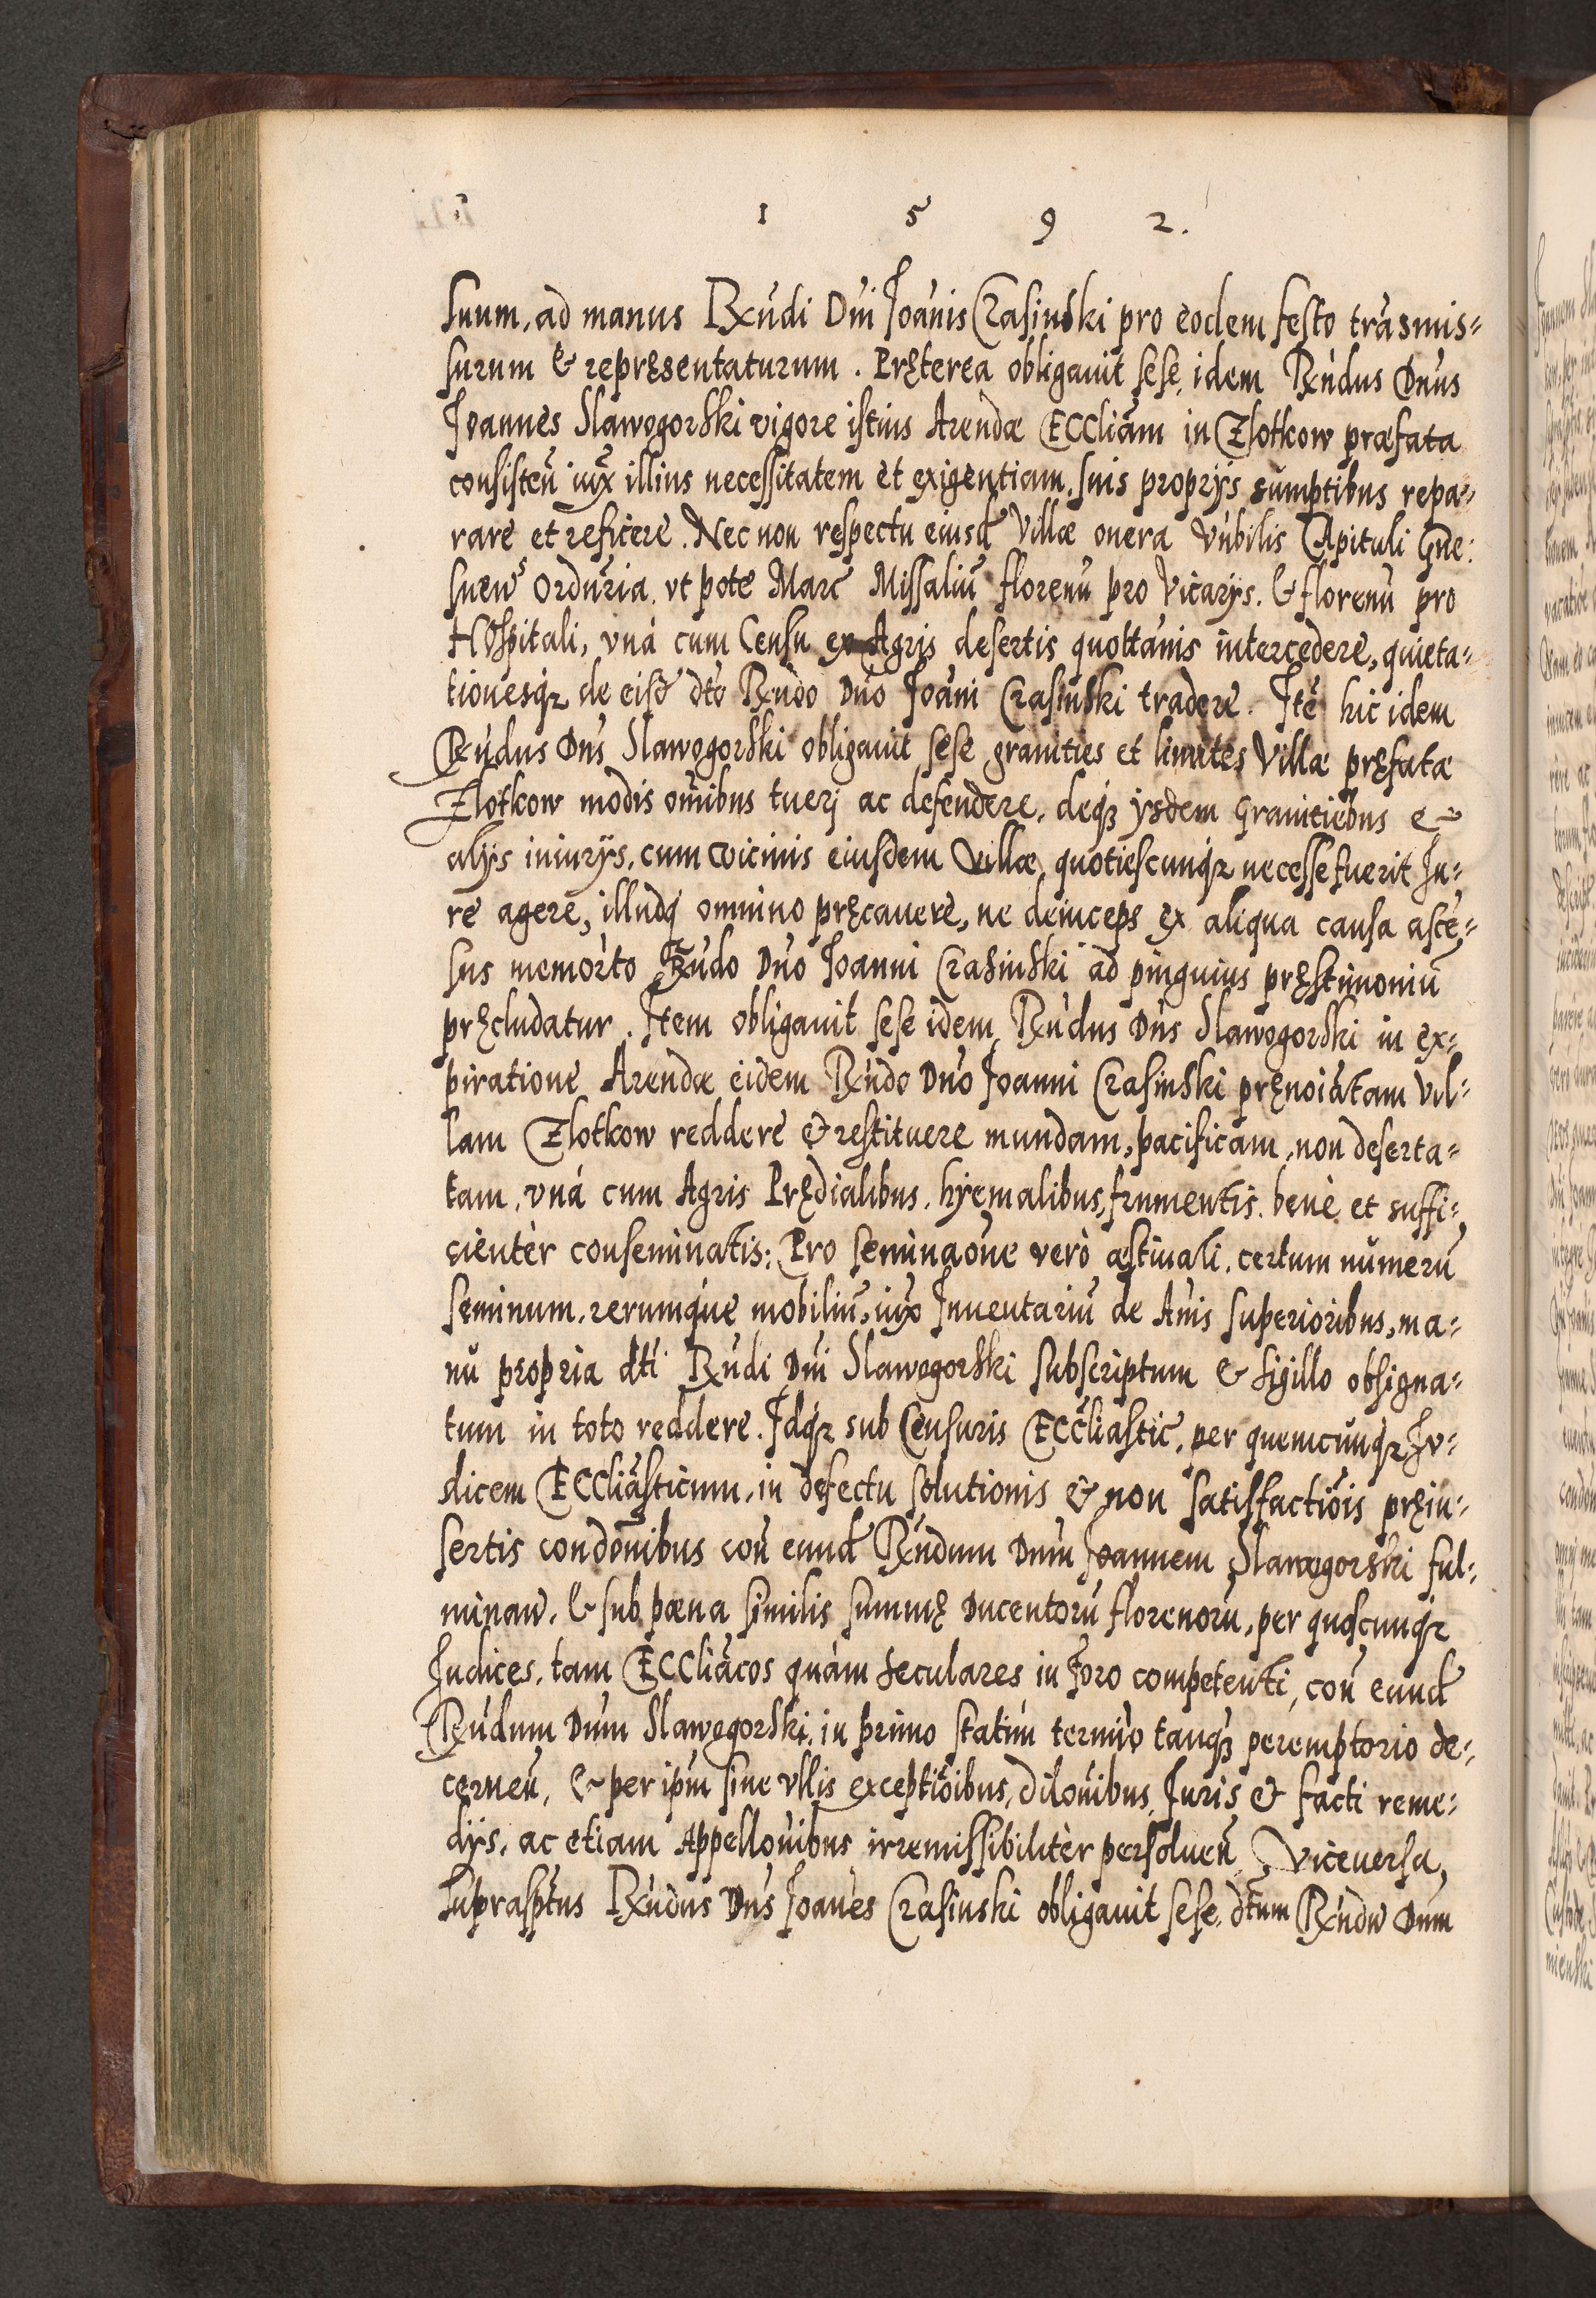 1 5 9 2.
suum, ad manus Rndi Dni Joānis Crasinski pro eodem festo trāsmis=
surum & repręsentaturum. Pręterea obligauit sese, idem Rndus Dnus
Joannes Slawogorski vigore istius Arendæ ECCliam in Zlotkow præfata
consisteñ iux̃ illius necessitatem et exigentiam, suis proprijs sumptibus repa=
rare et reficere. Nec non respectu eiusd Villæ onera Vnbilis Capituli Gne:
snen̄ Ordūria, vt pote Marc̄ Missaliū florenū pro Vicarijs, & florenū pro
Hospitali, vná cum Censu ex Agris desertis quottānis intercedere, quieta=
tionesqz de eisd dto Rndo Dno Joāni Crasinski tradere. Itē hic idem
Rndus Dns Slawogorski obligauit sese granities et limites Villæ pręfatæ
Zlotkow modis omībus tuerj ac defendere, deqz ysdem Granitiebus &
alijs iniurijs, cum vicinis eiusdem Villæ, quotiescunqz necesse fuerit Ju=
re agere, illudq omnino pręcauere, ne deinceps ex aliqua causa ascē=
sus memorto Rndo Dno Joanni Crasinski ad pinguius pręstimoniū
pręcludatur. Item obligauit sese idem, Rndus Dns Slawogorski in ex=
piratione Arendæ eidem Rndo Dno Joanni Crasinski pręnoiatam Vil=
lam Zlotkow reddere & restituere mundam, pacificam, non deserta=
tam, vná cum Agris Prędialibus, hyemalibus, frumentis, benè et suffi=
cientèr conseminatis: Pro seminaōne verò æstiuali, certum numerū
seminum, rerumque mobiliū, iux̃ Inuentariū de Anis superioribus, ma=
nu propria dti Rndi Dni Slawogorski subscriptum & sigillo obsigna=
tum in toto reddere. Idqz sub Censuris ECCliastic̄, per quemcunqz Iu=
dicem ECCliasticum, in defectu solutionis & non satisfactiōis pręin=
sertis condōnibus coñ eund Rndum Dnm Joannem Slawogorski ful=
minañ, & sub pæna similis summę Ducentorū florenorū, per quoscunqz
Judices, tam ECCliacos quàm seculares in Foro competenti, coñ eund
Rndum Dnm Slawogorski, in primo statim termīo tanqz peremptorio de=
cerneñ, & per ipm sine vllis exceptiōibus, dilōnibus, Juris & facti reme=
dijs, ac etiam Appellōnibus irremissibilitèr persolueñ. Viceuersa,
suprasptus Rndus Dns Joanes Crasinski obligauit sese, dtum Rndū Dnm